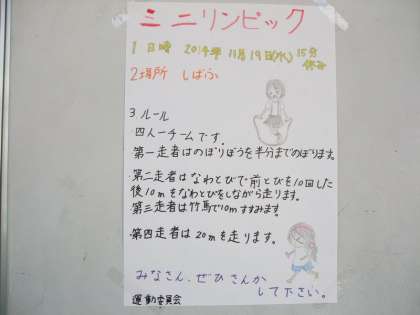 ミニリンピック
1 日時 2014年11月19日(水) 15分休み
2 場所 しばふ
3 ルール
四人一チームです。
第一走者はのぼりぼうを半分までのぼります。
第二走者はなわとびで前とびを10回した
後10mをなわとびをしながら走ります。
第三走者は竹馬で10mすすみます。
・第四走者は20mを走ります。
みなさん、ぜひさんか
して下さい。
運動委員会